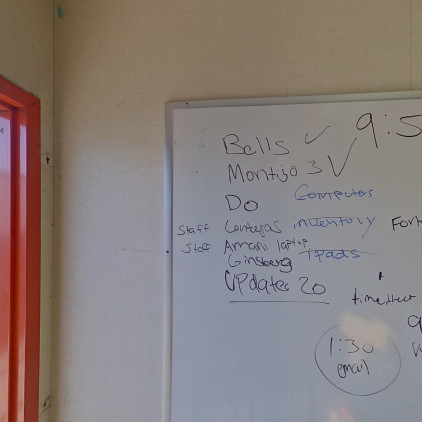 Bells ✓ 9:5
Montijo 3 ✓
Do Computers
Staff Contejas inventory
Staff Amani laptop
Ginsberg Ipads
UPdated 20
1:30
gmail